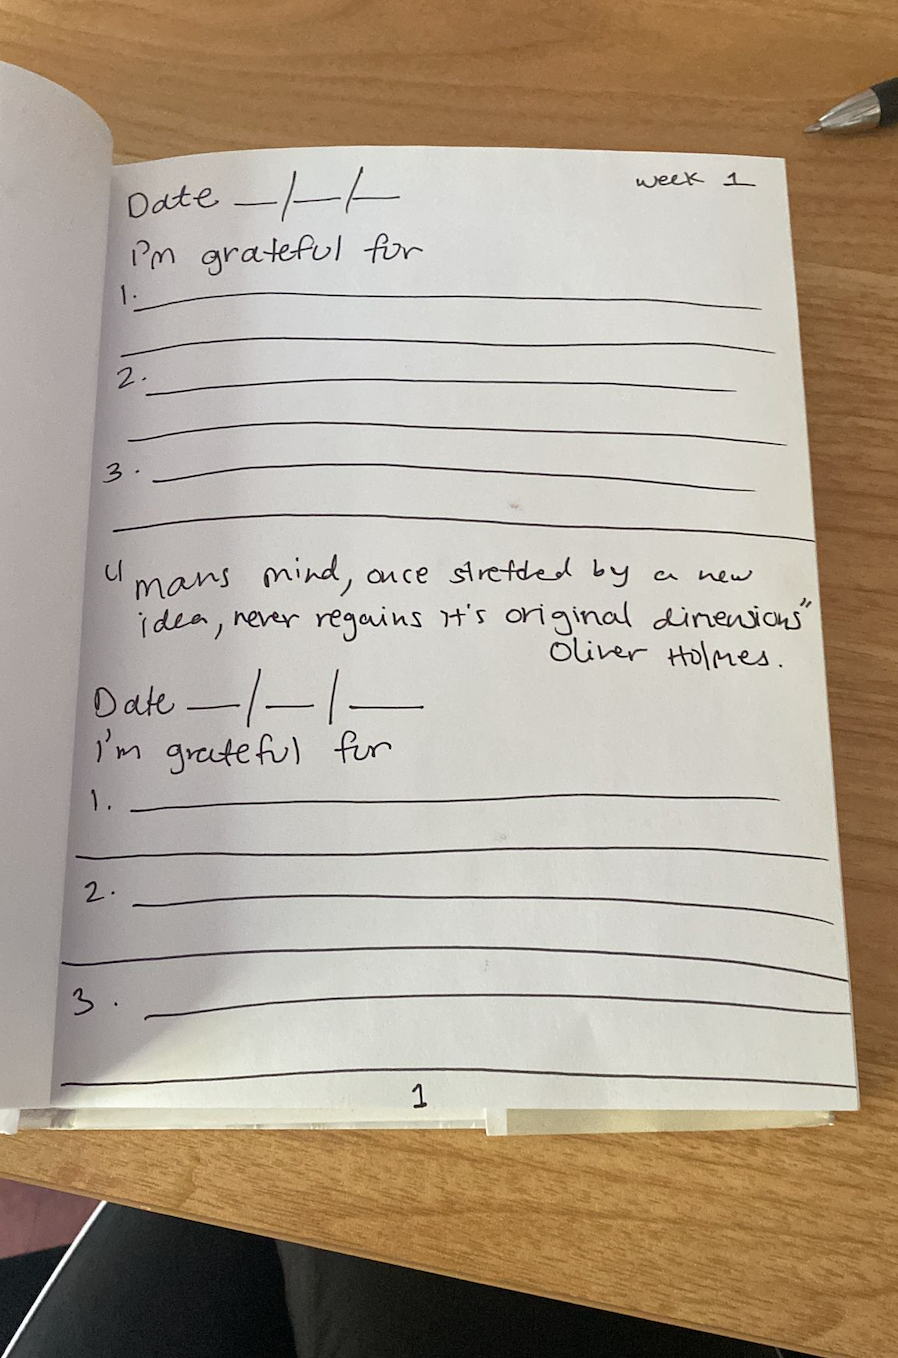 week 1
Date __/__/__
i'm grateful for
1.
2.
3.
"mans mind, once stretched by a new
idea, never regains it's original dimensions"
Oliver Holmes.
Date __/__/__
I'm grateful for
1.
2.
3.
1